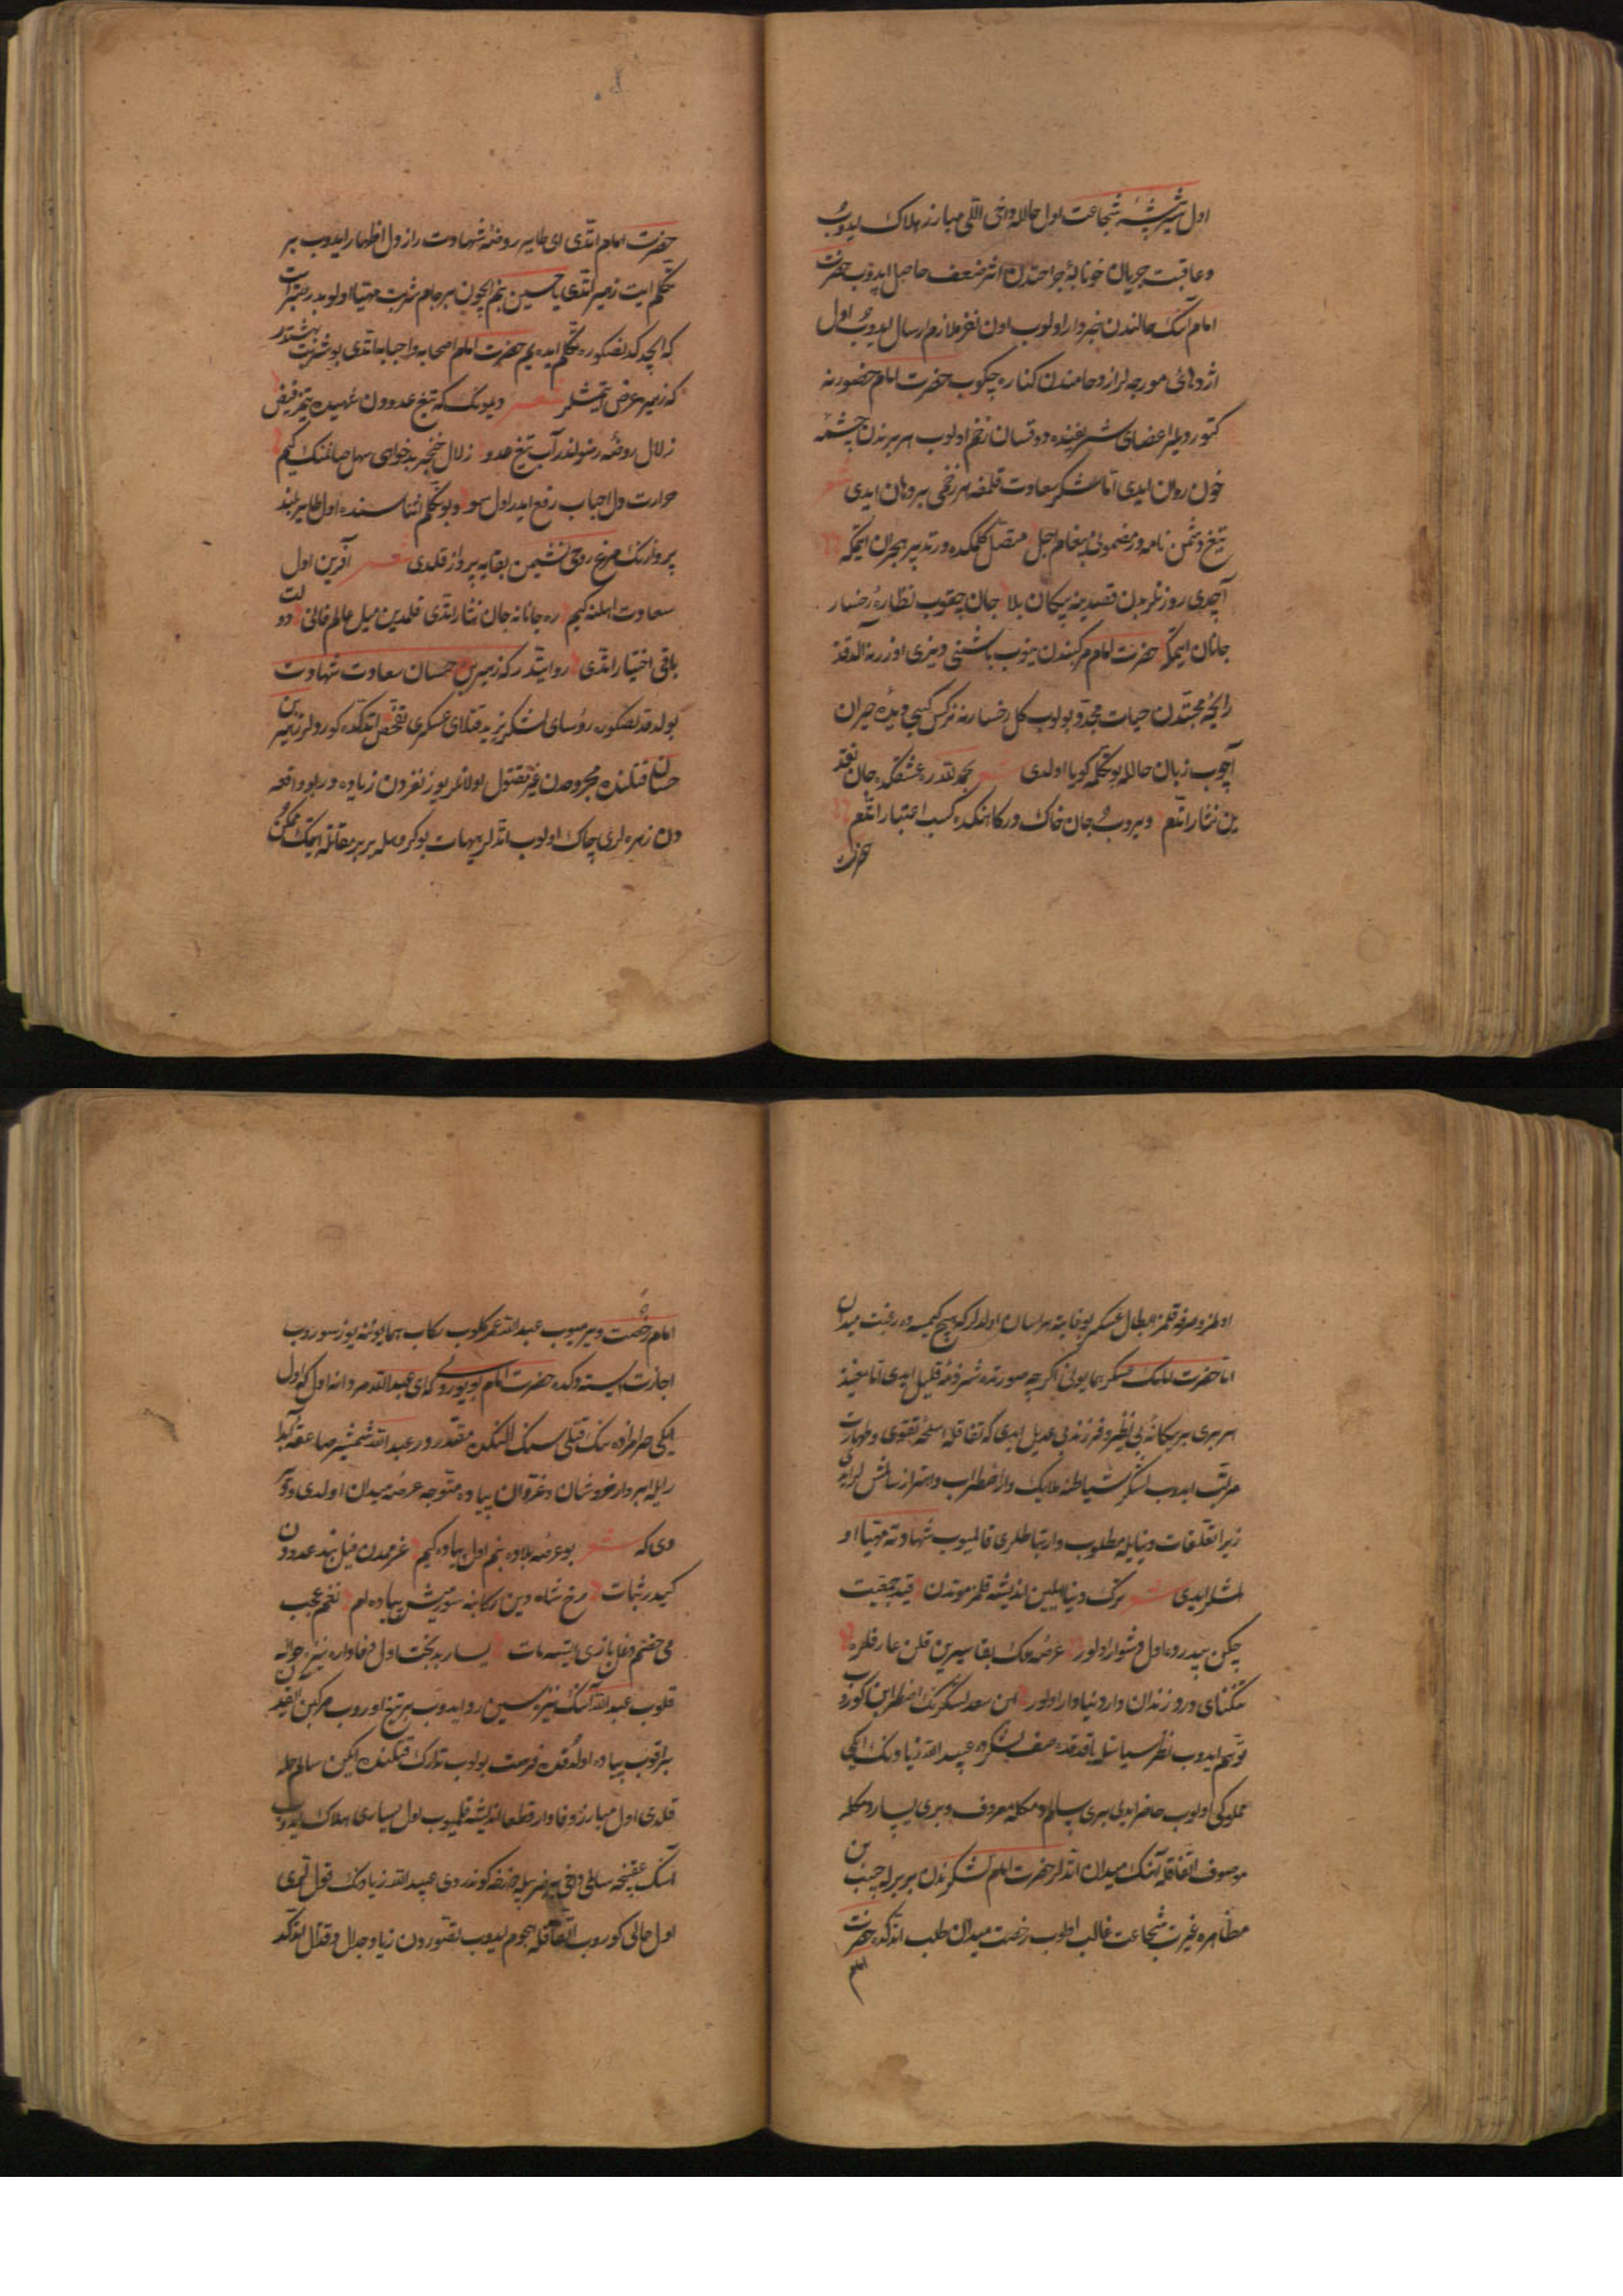 اول شیر بیشهٔ شجاعت اول حالله داخی اللی مبارز هلاک ایدوب
و عاقبت جریان خونابهٔ جراحتدن اثر ضعف حاصل ایدوب حضرت
امام آنک حالندن خبردار اولوب اون نفر ملازم ارسال ایدوب اول
اژدهائی مورچه لر ازدحامندن کناره چکوب حضرت امام حضورنه
کتوردیلر اعضای شریفنده دوقسان زخم اولوب هر برندن چشمه
خون روان ایدی اتا لشکر سعادت قلمغه هر زخمی بر دهان ایدی شعر
تیغ دشمن نامه در مضمونی پیغام اجل متصل کلمکده در تدبیر هجران ایتمکه
آچدی روزنلر بدن قصرینه پیکان بلا جان چقوب نظارهٔ رخسار
جانان ایتمکه حضرت امام مرکبندن ینوب باشنی دیزی اوزرنه آلدقده
رایحهٔ محبتدن حیات مجدد بولوب کل رخسارنه نرکس کبی دیدهٔ حیران
آچوب زبان حالله بو تکلمه کویا اولدی شعر بحمدلله در عشقکده جان نقد
ین نثار اتدم ویروب جان خاک درکاهکده کسب اعتبار اتدم
حضرت
حضرت امام اتدی ای طایر روضهٔ شهادت راز دل اظهار ایدوب بر
تکلم ایت زهیر اتدی یا حسین بنم ایچون بر جام شربت مهیا اولوبدر
که ایچدکدنصکوره تکلم ایده یم حضرت امام اصحابه و احبابه اتدی بو شربت بهشتدر
که زهیره عرض ایتمشلر شعر دیمونک که تیغ عدودن شهیده یتمز فیض
زلال روضهٔ رضواندر آب تیغ عدو زلال خنجر بدخواهی سهل صانمنک کیم
حرارت دل احباب رفع ایدر اول سو و بو تکلم اثناسنده اول طایر بلند
پروازنک مرغ روحی نشیمن بقایه پرواز قلدی شعر آفرین اول
سعادت اهلنه کیم ره جانانه جان نثار اتدی قلمدین میل عالم فانی دولت
باقی اختیار اتدی روایتدر که زهیر بن حسان سعادت شهادت
بولدقدنصکوره رؤسای لشکر یزید قتلای عسکری تفحص اتدکده کوردلر زهیر بن
حسان قتلنده مجروحدن غیر مقتول اولانلر یوز نفردن زیاده در بو واقعه
دن زهره لری چاک اولوب اتدلر هیهات بو کروهله بر بر مقاتله ایتمک ممکن
اولمز و صرفه قلمز ابطال عسکر بو غایته هراسان اولدلر که هیچ کیمسه ده رغبت میدان
اما حضرت امامنک عسکر همایونی اکرچه صورتده شرذمهٔ قلیل ایدی اما معنیده
هر بری بر یکانهٔ بی نظیر و فرزند بی عدیل ایدی که اتفاقله اسلحهٔ تقوی و طهارت
مرتب ایدوب لشکر شیاطینه ملایک وار اضطراب
زیرا تعلقات دنیایله مطلوب و ارتباطلری قالمیوب شهادته مهیا او
لمشلر ایدی شعر ترک دنیا ایلین اندیشه قلمز موتدن قید جمعیت
چکن بیدرده اول دشوار اولور عرصهٔ ملک بقا سیرین قلن عار قلره
تنکنای درد و زندان دار دنیا دار اولور ابن سعد لشکرنک اضطرابن کوروب
توهم ایدوب نظر سیاستله باقدقده صف لشکرده عبید الله زیادنک ایکی
مملوکی اولوب حاضر ایدی بری سالم دمکله معروف و بری یسار دمکله
موصوف اتفاقله آهنک میدان اتدلر حضرت امام لشکرندن بریر ایله حبیب بن
مظاهره غیرت شجاعت غالب اولوب رخصت میدان طلب اتدکده حضرت
امام
امام رخصت ویرمیوب عبد الله عمر کلوب رکاب همایوننه یوز سوروب
اجازت ایستدوکده حضرت امام بویوردی که ای عبد الله مردانه اول که اول
ایکی حرامزاده نک قتلی سنک الکده مقدردر عبد الله شمشیر صاعقه
رایله ابروار خروشان و غران پیاده متوجه عرصهٔ میدان اولدی
دی که شعر بو عرصهٔ بلاده بنم اول پیاده کیم عزمندن فیل بند عدودن
کیدر ثبات رخ شاه دین رکابنه سورمش پیاده ام نغم عجب
می خصم دغل بازی ایتسه مات یسار بدبخت اول وفاداره نیزه حواله
قلوب عبد الله آنک نیزه سین رد ایدوب بر تیغ اوروب مرکبن
براقوب پیاده اولدقده فرصت بولوب تدارک قتلنده ایکن سالم حمله
قلدی اول مبارز وفادار قطعا اندیشه قلمیوب اول یساری هلاک ایدوب
آنک عقبنجه سالمی داخی بر ضربیله دوزخه کوندردی عبید الله زیادنک قول
اول حالی کوروب اتفاقله هجوم ایدوب تصوردن زیاد جدال و قتال اتدکده